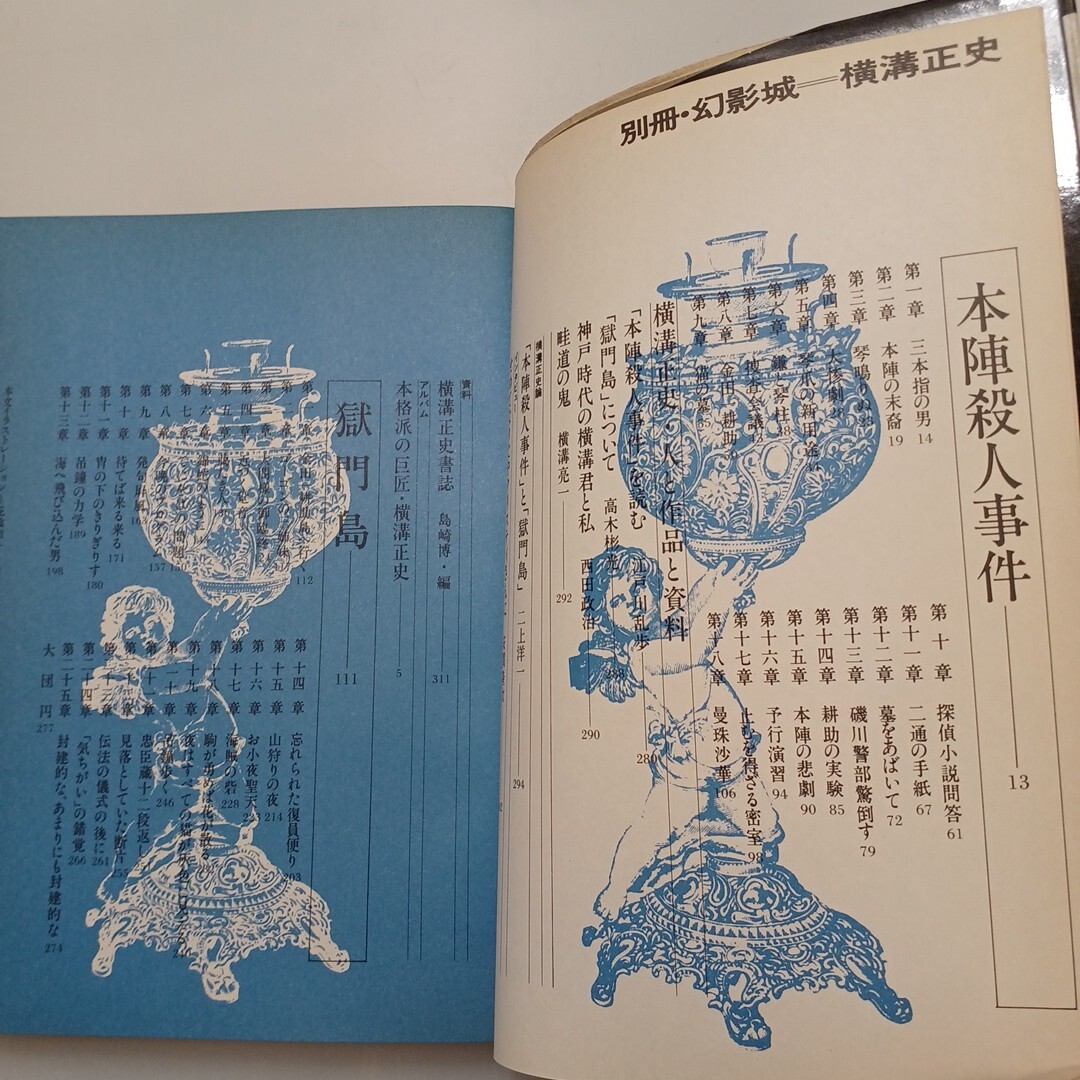 別冊・幻影城＝横溝正史
本陣殺人事件 13
第一章 三本指の男 14
第二章 本陣の末裔 19
第三章 琴鳴りぬ 23
第四章 大惨劇 28
第五章 琴爪の新用途
第六章 鎌と琴柱 38
第七章 捜査会議 43
第八章 金田一耕助 50
第九章 猫の墓 55
第十章 探偵小説問答 61
第十一章 二通の手紙 67
第十二章 墓をあばいて 72
第十三章 磯川警部驚倒す 79
第十四章 耕助の実験 85
第十五章 本陣の悲劇 90
第十六章 予行演習 94
第十七章 止むを得ざる密室 98
第十八章 曼珠沙華 106
横溝正史・人と作品と資料
「本陣殺人事件」を読む 江戸川乱歩 280
「獄門島」について 高木彬光 288
神戸時代の横溝君と私 西田政治 290
畦道の鬼 横溝亮一 292
横溝正史論
「本陣殺人事件」と「獄門島」 二上洋一 294
資料
横溝正史書誌 島崎博・編 311
アルバム
本格派の巨匠・横溝正史 5
獄門島 111
112
第四章
第五章
第六章
第七章
第八章 157
第九章 発句屏風
第十章 待てば来る来る 171
第十一章 冑の下のきりぎりす 180
第十二章 吊鐘の力学 189
第十三章 海へ飛び込んだ男 198
第十四章 忘れられた復員便り 203
第十五章 山狩りの夜 214
第十六章 お小夜聖天 223
第十七章 海賊の砦 228
第十八章 駒が勇めば花が散る
第十九章 夜はすべての猫が灰色に
第二十章 246
忠臣蔵十二段返し
見落としていた断片 255
伝法の儀式の後に 261
第二十四章 「気ちがい」の錯覚 266
第二十五章 封建的な、あまりにも封建的な 274
大団円 277